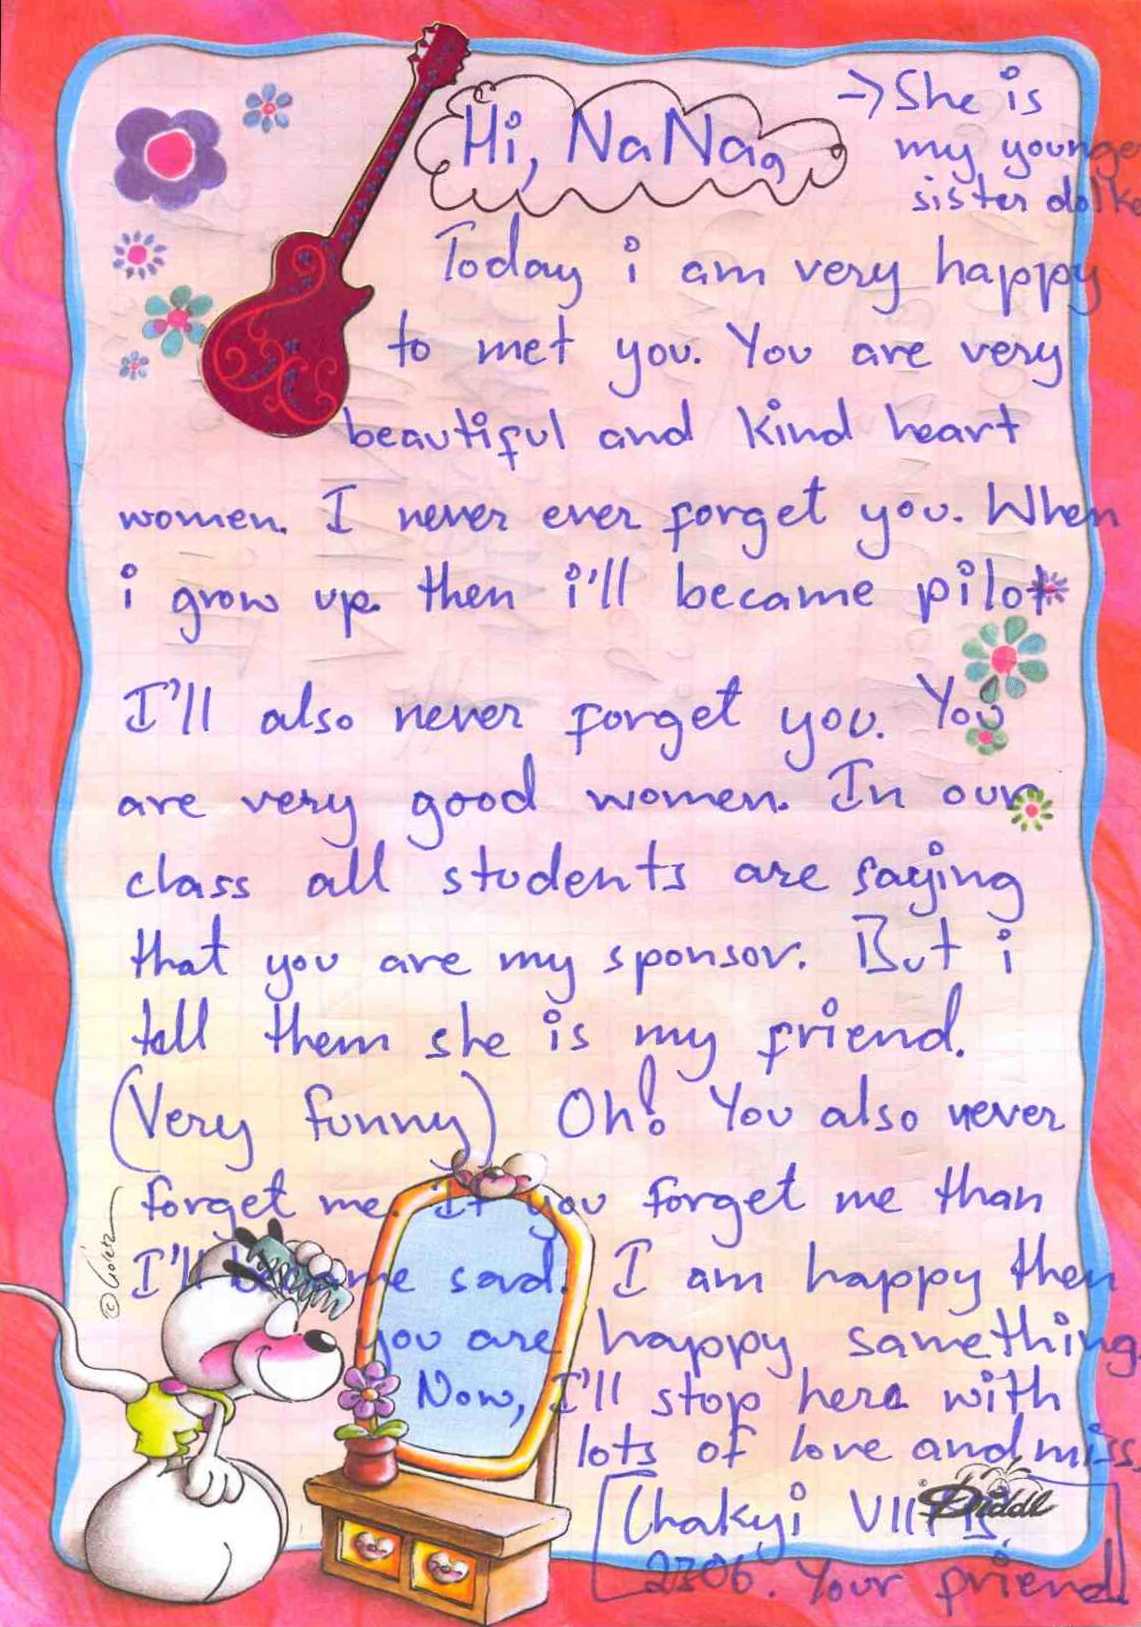 Hi, NaNa,
-> She is
my younge
sister dolk
Today i am very happy
to met you. You are very
beautiful and kind heart
women. I never ever forget you. When
i grow up. then i'll became pilot
I'll also never forget you. You
are very good women. In our
class all students are saying
that you are my sponsor. But i
tell them she is my friend.
(Very funny) Oh! You also never
forget me. If you forget me than
I'll became sad. I am happy then
you are happy samething.
Now, I'll stop here with
lots of love and miss.
Chakyi
2306. Your friend
Diddl
©